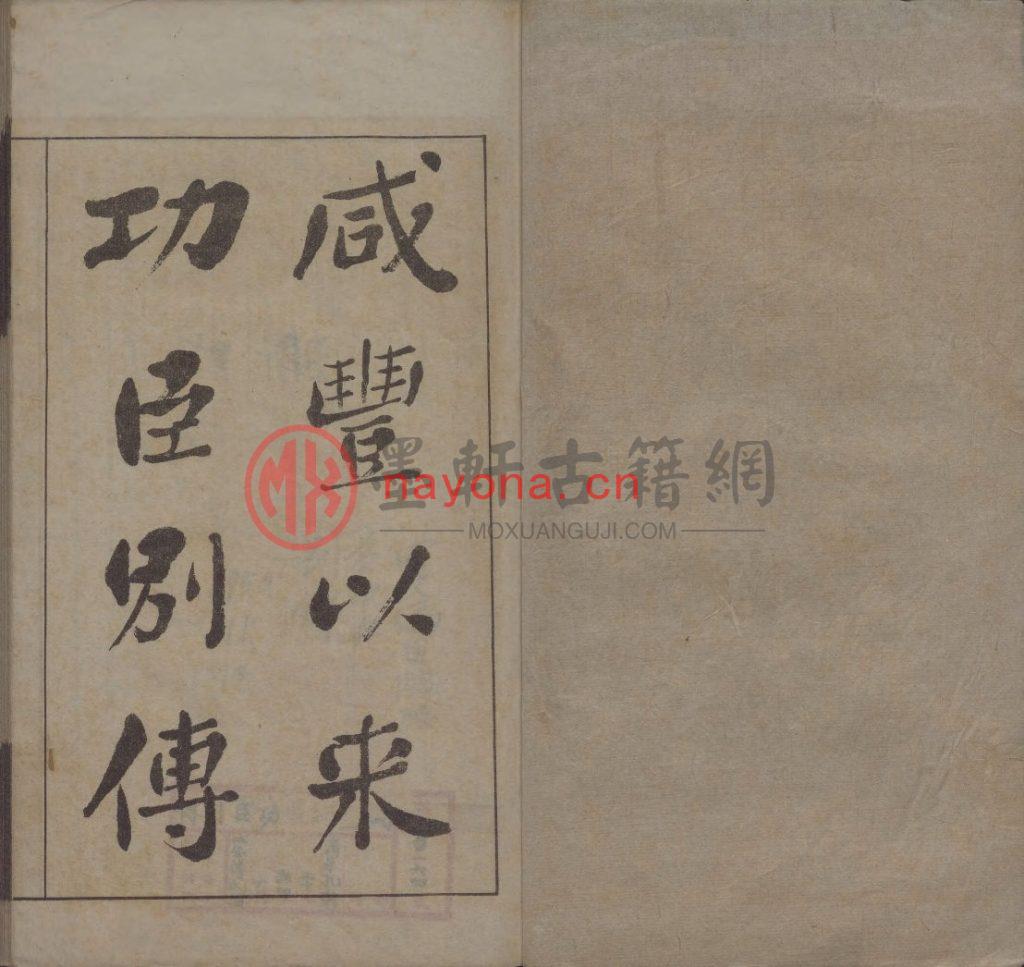 咸豐以来
功臣別傳
墨軒古籍網
nayona.cn
MOXUANGUJI.COM